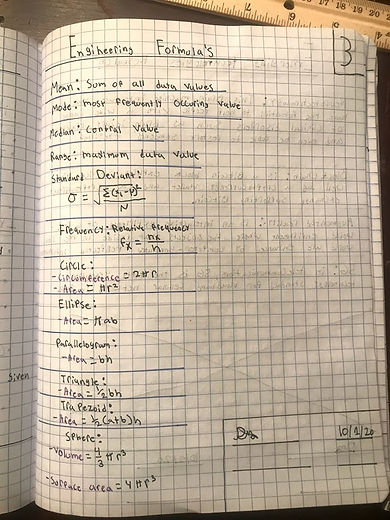 Engineering Formula's
3
Mean: Sum of all data values
Mode: most frequently occuring value
Median: Central value
Range: maximum data value
Standard Deviant:
σ = √(Σ(xᵢ-μ)²/N)
Frequency: Relative frequency
fₓ = nx/n
Circle:
-Circumference = 2πr
-Area = πr²
Ellipse:
-Area = πab
Parallelogram:
-Area = bh
Triangle:
-Area = ½bh
Trapezoid:
-Area = ½(a+b)h
Sphere:
-Volume = 4/3 πr³
-Surface area = 4πr³
10/1/20
Given